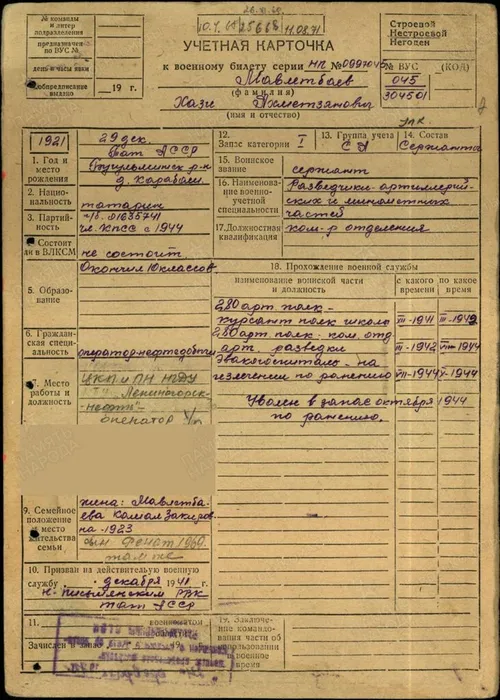 № команды
и литер
подразделения
предназначен
по ВУС №
день и часы явки
Добпредписание
выдано 19 г.
10.1.61
11.08.71
Строевой
Нестроевой
Негоден
УЧЕТНАЯ КАРТОЧКА
к военному билету серии НП № 0997045
ВУС (КОД)
Мавлетбаев
(фамилия)
Хази Ахметзянович
(имя и отчество)
045
304501
1921
29 дек.
Тат АССР
Бугульминск р-н
д. Карабаш.
1. Год и
место
рождения
2. Нацио-
нальность
татарин
3. Партий-
ность
01635741
чл. КПСС с 1944
4. Состоит
ли в ВЛКСМ
не состоит
5. Образо-
вание
Окончил 10 классов
6. Граждан-
ская специ-
альность
оператор-нефтедобычи
7. Место
работы и
должность
ЦКП и ПН НГДУ
"Лениногорск-
нефть"
оператор
9. Семейное
положение
и место
жительства
семьи
жена: Мавлетба-
ева Камал Закиров-
на - 1923
сын Фенат 1960.
там же
10. Призван на действительную военную
службу декабря 1941 г.
Н-Письмянским РВК
Тат АССР
11. военкоматом
Зачислен в запас 19
12.
Запас категории I
13. Группа учета
СА
14. Состав
Сержанты
15. Воинское
звание
сержант
16. Наименование
военно-учетной
специальности
Разведчики артиллерий-
ских и минометных
частей
17. Должностная
квалификация
ком-р отделения
18. Прохождение военной службы
наименование воинской части
и должность
с какого
времени
по какое
время
280 арт. полк -
курсант полк школы
XII-1941
III-1942
280 арт. полк - ком. отд
арт разведки
III-1942
VII-1944
Эвакогоспиталь - на
излечении по ранению
VII-1944
X-1944
Уволен в запас октябрь 1944
по ранению.
19. Заключение
командования
части об
использовании
в военное время